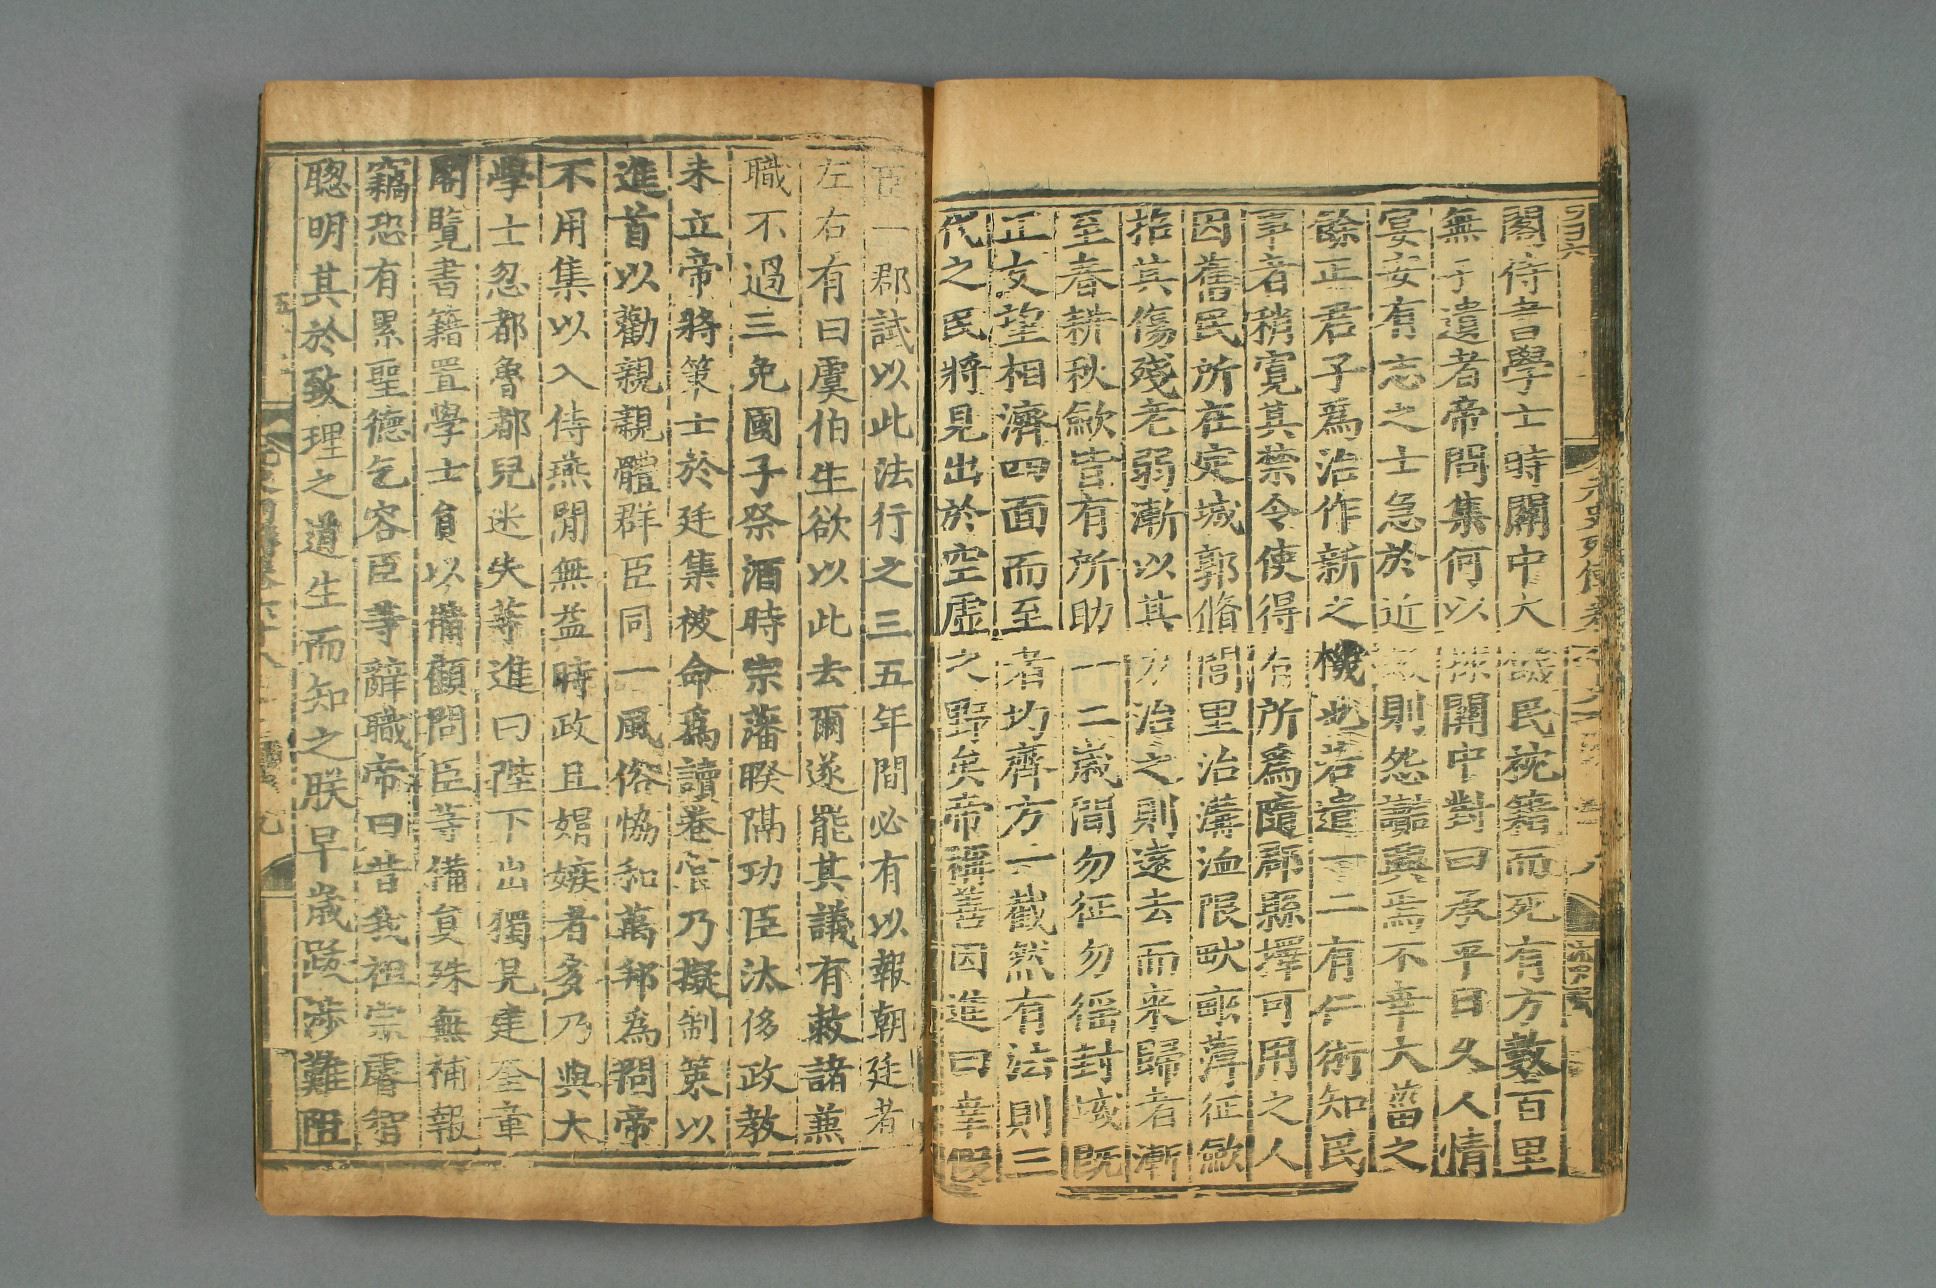 閣侍書學士時關中大饑民枕籍而死有方數百里
無孑遺者帝問集何以捄關中對曰承平日久人情
宴安有志之士急於近效則怨讟興焉不幸大菑之
餘正君子爲治作新之機也若遣一二有仁術知民
事者稍寬其禁令使得有所爲隨郡縣擇可用之人
因舊民所在定城郭脩閭里治溝洫限畎畝薄征斂
招其傷殘老弱漸以其力治之則遠去而來歸者漸
至春耕秋斂皆有所助一二歲間勿征勿徭封域既
正友望相濟四面而至者均齊方一截然有法則三
代之民將見出於空虛之野矣帝稱善因進曰幸假
臣一郡試以此法行之三五年間必有以報朝廷者
左右有曰虞伯生欲以此去爾遂罷其議有敕諸兼
職不過三免國子祭酒時宗藩睽隔功臣汰侈政教
未立帝將策士於廷集被命爲讀卷官乃擬制策以
進首以勸親親體群臣同一風俗恊和萬邦爲問帝
不用集以入侍燕閒無益時政且媢嫉者多乃與大
學士忽都魯都兒迷失等進曰陛下出獨見建奎章
閣覽書籍置學士員以備顧問臣等備員殊無補報
竊恐有累聖德乞容臣等辭職帝曰昔我祖宗睿智
聰明其於致理之道生而知之朕早歲跋涉難阻
元史列傳卷六十八